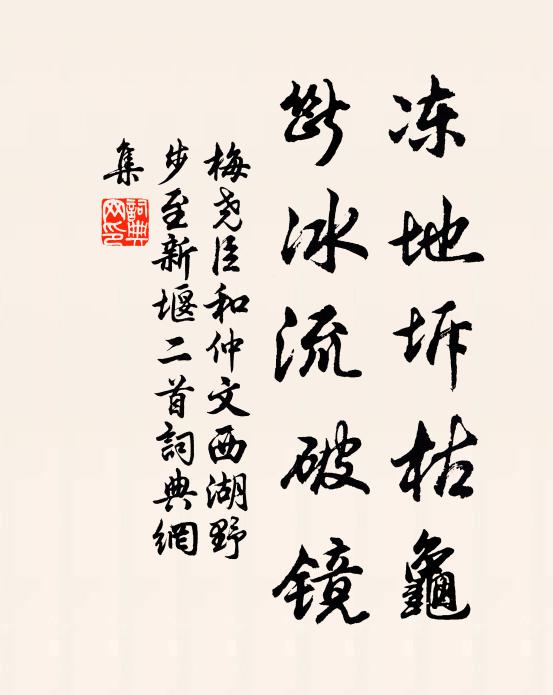 冻地坼枯龜
斷冰流破镜
梅尧臣和仲文西湖野
步至新堰二首詞典網
集
詞典
网印